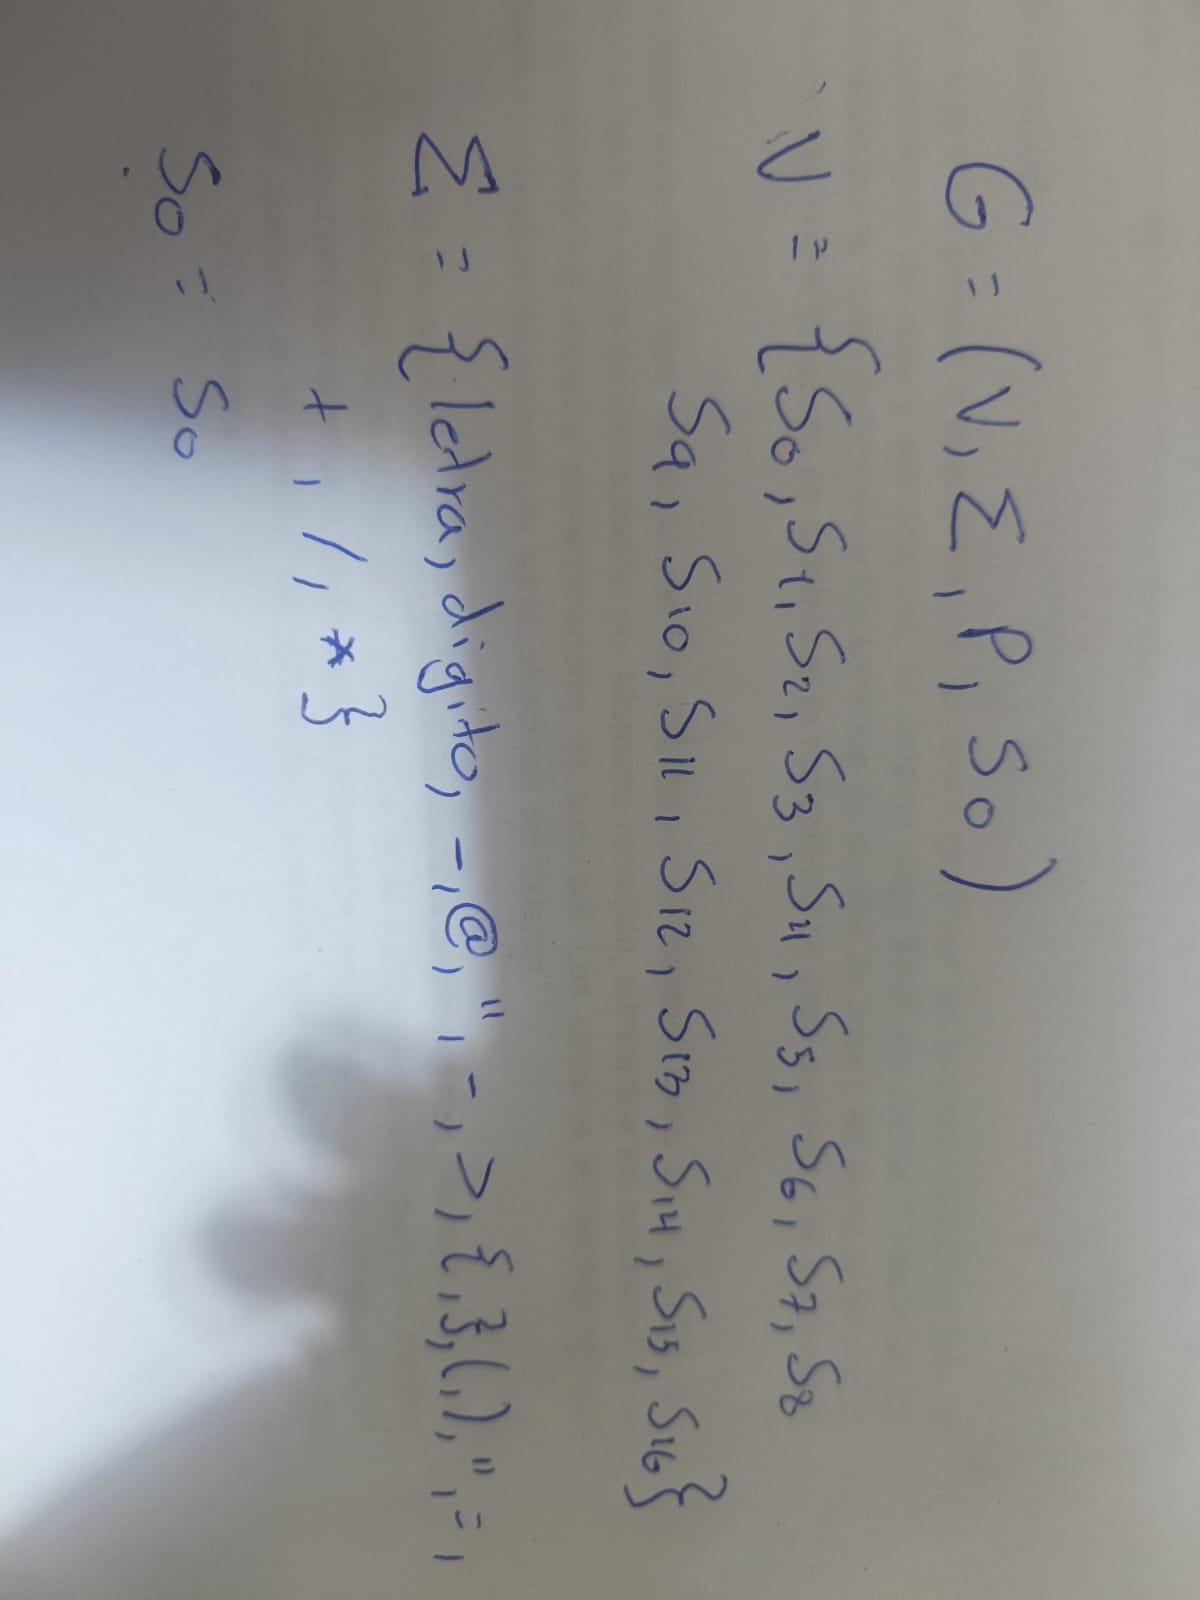 G = (N, Σ, P, S0)
N = {S0, S1, S2, S3, S4, S5, S6, S7, S8
S9, S10, S11, S12, S13, S14, S15, S16}
Σ = {letra, digito, -, @, ", -, >, {, }, (, ), ", =,
+, /, *}
S0 = S0